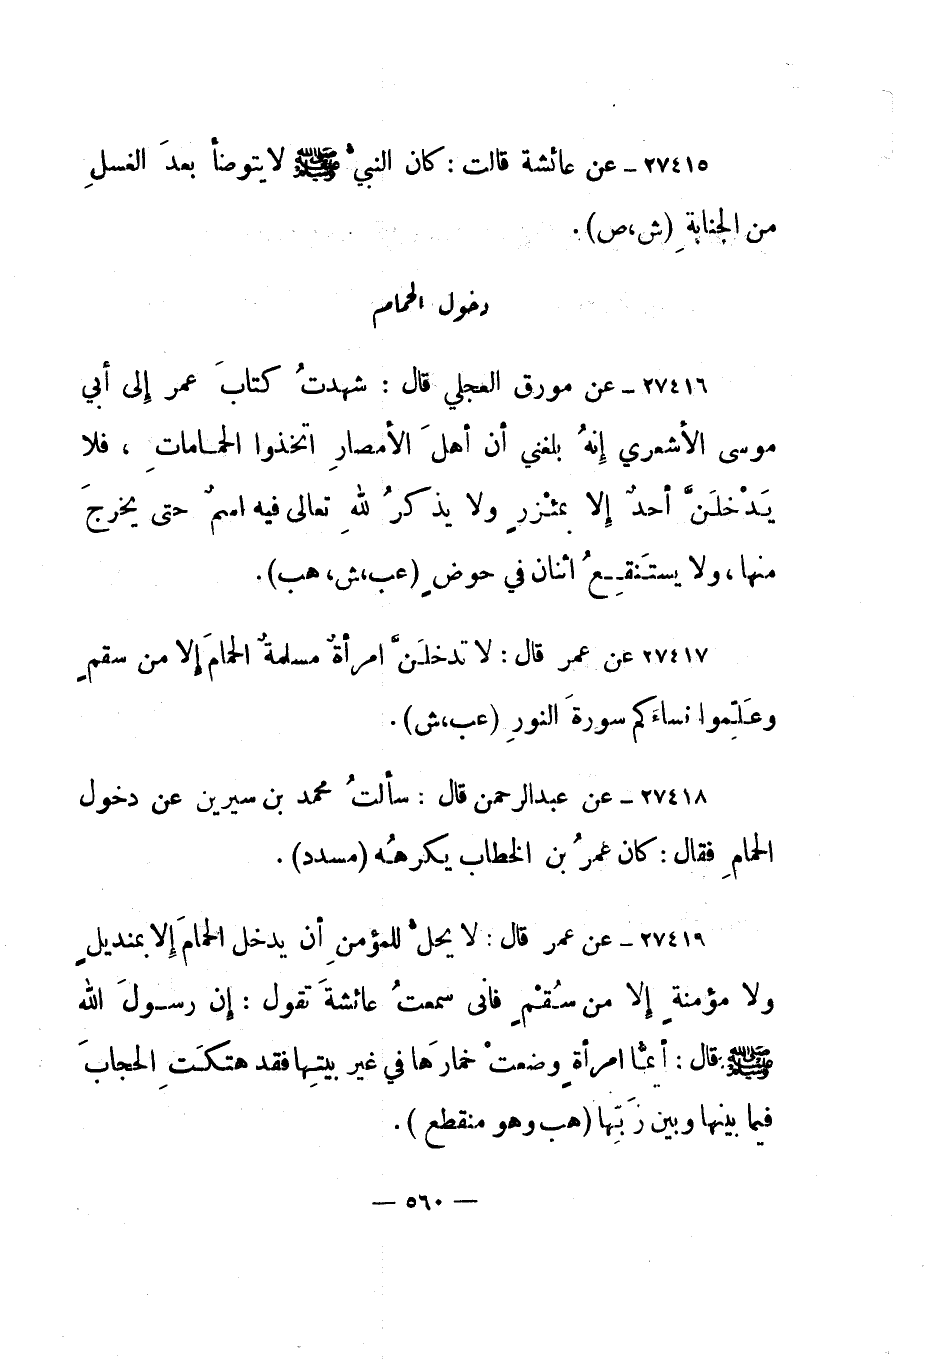 ٢٧٤١٥ ـ عن عائشة قالت : كان النبيُّ ﷺ لا يتوضأ بعدَ الغسلِ
من الجنابةِ (ش،ص).
دخول الحمام
٢٧٤١٦ ـ عن مورق العجلي قال : شهدتُ كتابَ عمر إلى أبي
موسى الأشعري إنهُ بلغني أن أهلَ الأمصارِ اتخذوا الحمـاماتِ ، فلا
يَدْخلَنَّ أحدٌ إلا بمئْزرٍ ولا يذكرُ للهِ تعالى فيه اسمٌ حتى يخرجَ
منها ، ولا يستَنقِـعُ اثنان في حوضٍ (عب،ش،هب).
٢٧٤١٧ عن عمر قال : لا تدخلَنَّ امرأةٌ مسلمةٌ الحمامَ إلا من سقمٍ
وعَلِّموا نساءَكم سورةَ النورِ (عب،ش).
٢٧٤١٨ ـ عن عبدالرحمن قال : سألتُ محمد بن سيرين عن دخول
الحمامِ فقال : كان عمرُ بن الخطاب يكرهُه (مسدد).
٢٧٤١٩ ـ عن عمر قال : لا يحلُّ للمؤمنِ أن يدخل الحمامَ إلا بمنديلٍ
ولا مؤمنةٍ إلا من سُقْمٍ فانى سمعتُ عائشةَ تقول : إن رسـولَ الله
ﷺ قال : أيمّا امرأةٍ وضعتْ خمارَها في غير بيتِها فقد هتكَتِ الحجابَ
فيما بينها وبين رَبِّها (هب وهو منقطع).
— ٥٦٠ —